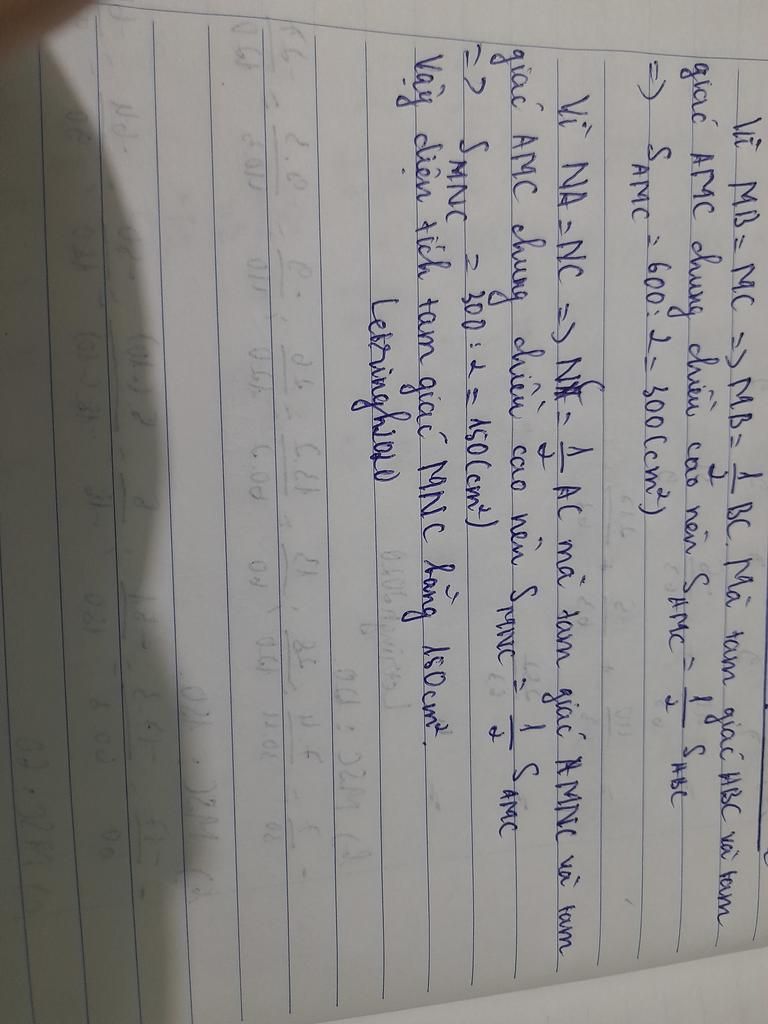 Vì MB = MC => MB = 1/2 BC. Mà tam giác ABC và tam
giác AMC chung chiều cao nên S AMC = 1/2 S ABC
=> S AMC = 600 : 2 = 300 (cm²)
Vì NA = NC => NA = 1/2 AC mà tam giác MNC và tam
giác AMC chung chiều cao nên S MNC = 1/2 S AMC
=> S MNC = 300 : 2 = 150 (cm²)
Vậy diện tích tam giác MNC bằng 150cm².